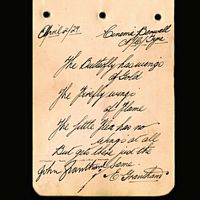 April 2/29
Cinema Benwell
The Butterfly has wings
of Gold
The Firefly wings
of Flame
The little Flea has no
wings at all
But gets there just the
same
John Grantham
E Grantham